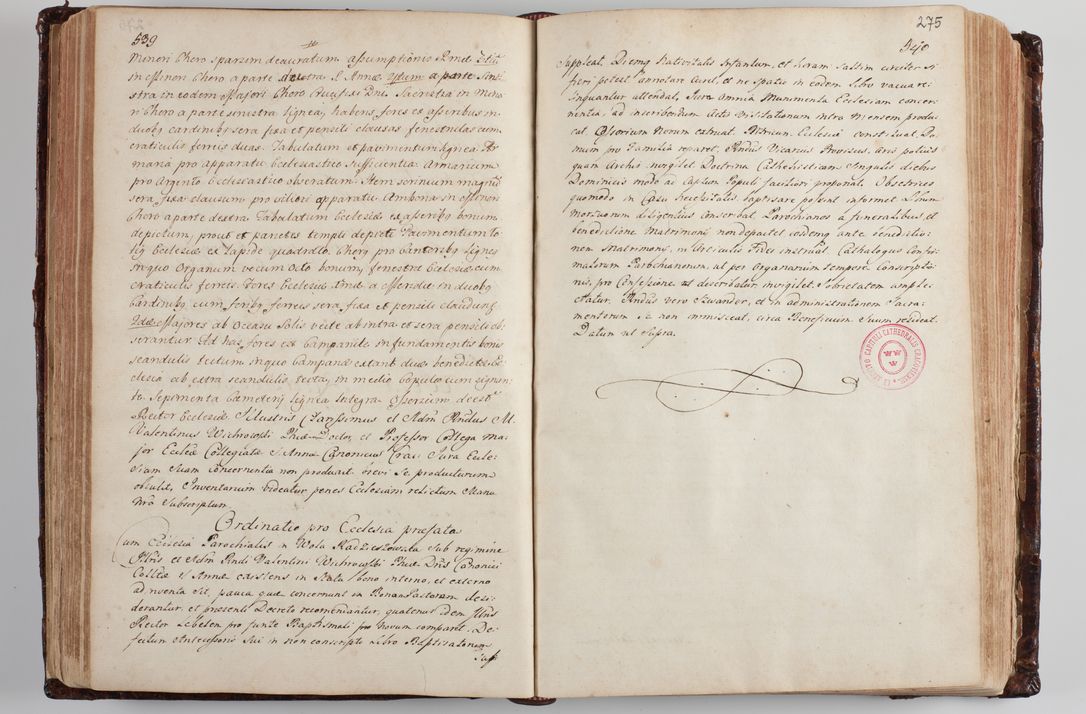 539
Minori Choro sparsim deauratum assumptionis Bmae
in essinori Choro a parte dextra S. Annae Ejdem a parte Sini
stra in eodem Majori Choro Crucifixi Dni. Sacristia in Mino
ri Choro a parte sinistra lignea, habens fores ex asseribus in
duobq cardinibq sera fixa et pensili clausas fenestrelas cum
craticulis ferreis duas. Tabulatum et pavimentum lignea.
pro apparatu Ecclesiastico Sufficientia Armarium
pro Argento Ecclesiastico obseratum. Item scrinium magnū
sera fixa clausum pro viliori apparatu. Ambona in
Choro a parte dextra Tabulatum Ecclesiae ex asseribq bonum
depictum, prout et parietes templi depictè Pavimentum to
tiq Ecclesiae ex lapide quadrato. Chorq pro Cantoribq lignes
inquo Organum vocum Octo bonum, fenestre Ecclesiae cum
craticulis ferreis. Fores Ecclesiae una a Meridie in duobq
Cardinibq cum foribq ferreis sera fixa et pensili claudunt
Majores ab Occasu Solis vecte ab intra et sera pensili ob
serantur Ad has fores est Campanile in fundamentis bonis
scandulis tectum inquo Campanae extant duae benedictae Ec
clesia ab extra scandulis tecta, in medio Copulo cum signum
to. Sepimenta Cameterij lignea integra Ossorium deest
Rector Ecclesiae Illustris Clarissimus et Adm Rndus M.
Valentinus Wichrowski Phiae Doctor, et Professor Collega ma
jor Ecclae Collegiatae S. Annae Canonicus Crac: Jura Eccle
siam Suam Concernentia non produxit brevi Se producturum
obtulit, Inventarium videatur penes Ecclesiam relictum Manu
Nrā Subscriptum.
Ordinatio pro Ecclesia praefata
Cum Ecclesia Parochialis in Wola Radziszowska sub regimine
Illris et Adm Rndi Valentini Wichrowski Phiae Dris Canonici
Collae S. Annae existens in Statu bono interno, et externo
ad inventa sit, pauca quae concernunt in Bonum Pastorem desi
derantur, et presenti Decreto recomendantur, quatenus idem Illris
Rector Lebetem pro funte Baptismali pro Novum comparet. De
fectum Antecessoris Sui in non conscripto Libro Baptisatorum
Supp
275
540
suppleat, Diemq Nativitatis Infantum, et horam Saltim circiter si
fieri potest annotare curet, et ne spatia in eodem libro vacua re
linquantur attendat, Jura Omnia Munimenta Ecclesiam concer
nentia, ad inscribendum Actis Visitationum intra Mensem produ
cat. Ossorium Novum extruat. Vitricum Ecclesiae constituat, Do
mum pro Familia reparet. Rndus Vicarius Provisus, aris potius
quam Archis invigilet Doctrina Cathechisticam Singulis diebus
Dominicis modo ad Captum Populi faciliori proponat. Obstetrices
quomodo in Casu Necessitatis baptisare possint informet. Librum
Mortuorum diligentius Conserbat. Parochianos a funeralibus, et
benedictione Matrimonij non depactet eosdemq ante benedictio
nem Matrimonij, in Articulis Fidei instruat. Cathalogus Confir
matorum Parochianorum, ut per Organarium tempore Conscriptio
nis, pro Confessione, ut describatur invigilet. Sobrietatem amplec
tatur. Rndus vero Szwander, et in administrationem Sacra
mentorum se non immisceat, circa Beneficium Suum resideat.
Datum ut Supra.
EX ARCHIVO CAPITULI CATHEDRALIS CRACOVIENSIS